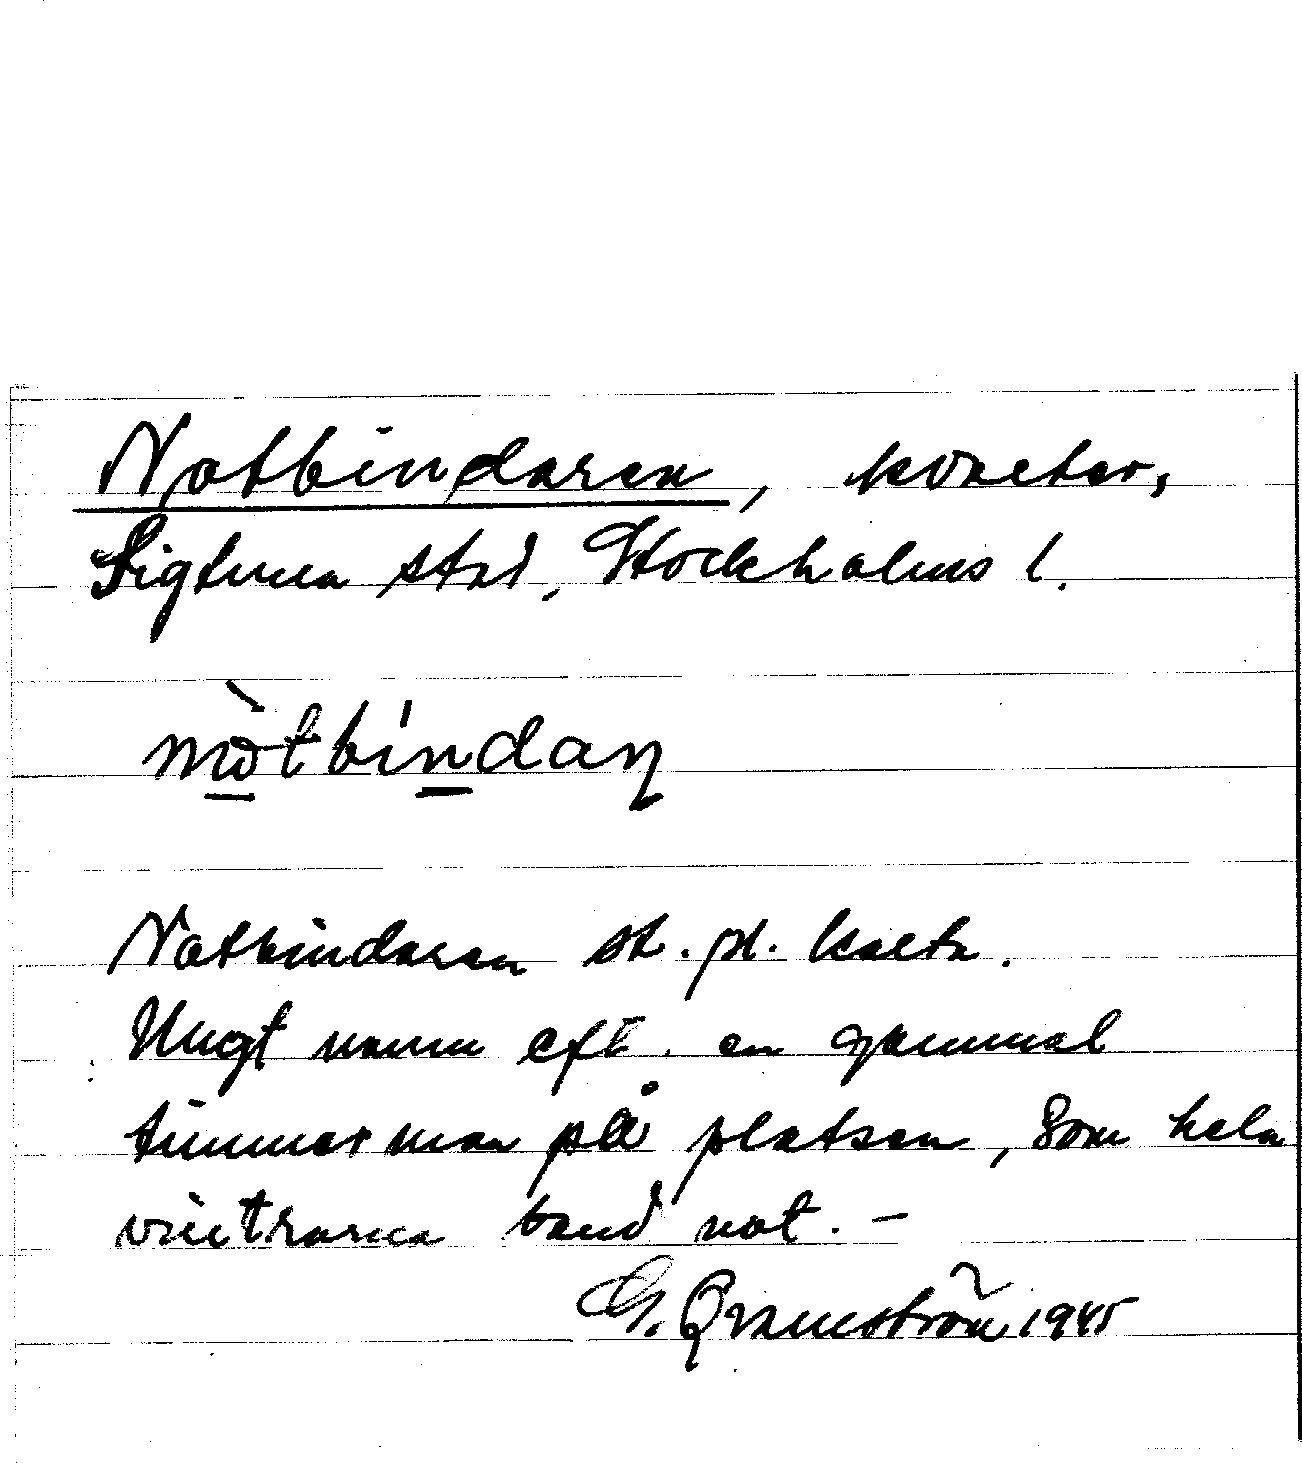 Notbindaren, kvarter,
Sigtuna stad, Stockholms l.
nòtbíndaṇ
Notbindaren st. pl. karta.
Ungt namn eft. en gammal
timmerman på platsen, som hela
vintrarna band not. –
G. Qvarnström 1945